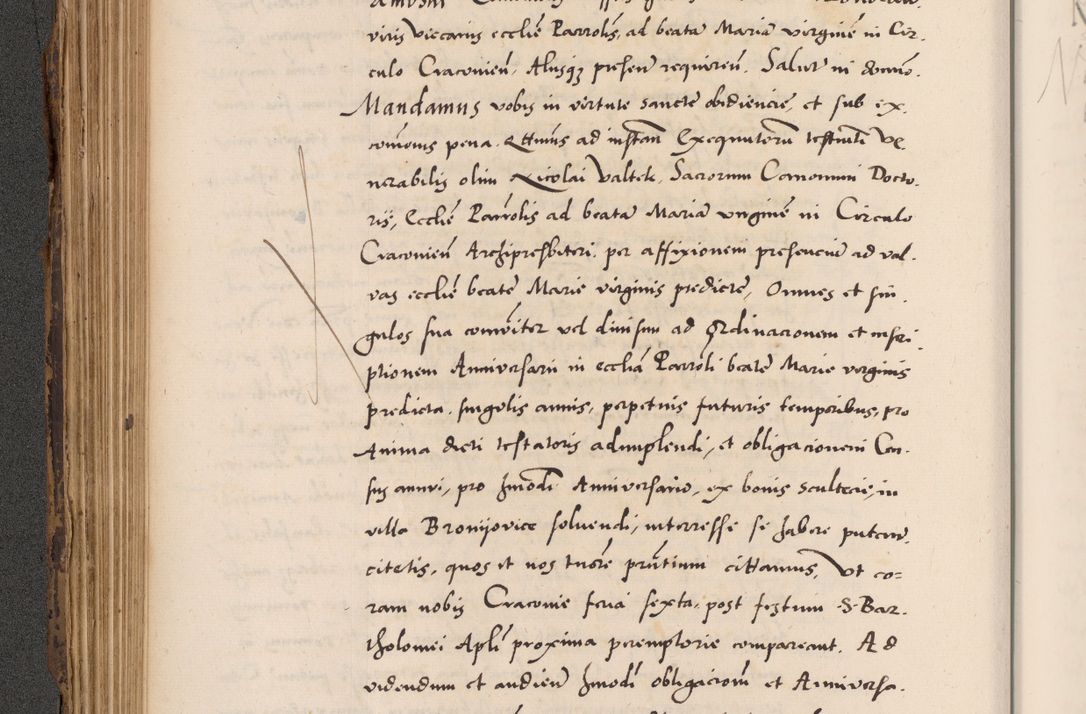 viris Viccariis eccliē Parrolis, ad beatā Mariā virginē in Cir-
culo Cracovień, Aliisqʒ presen requiren. Salut in domno.
Mandamus vobis in virtute sancte obidiencie, et sub ex-
comōnis pena. Qtinus ad instan Exequutorū testmti Ve-
nerabilis olim Nicolai Valtek, Sacrorum Canonum Docto-
ris, Eccliē Parrolis ad beatā Mariā virginē in Circulo
Cracovień Archipresbiteri. per affixionem presenciū ad val-
vas eccliē beate Marie virginis predicte, Omnes et sin-
gulos sua com̄iter vel divisim ad Ordinacionem et inscri-
ptionem Anniversarii in ecclia Parroli beate Marie virginis
predicta, singulis annis, perpetuis futuris temporibus, pro
Anima dicti testatoris adimplendi, et obligacionem Cen-
sus annui, pro hmōdi Anniversario, ex bonis scultecie, in
villa Bronijovice solvendi, interresse se habere puten.
citetis, quos et nos tnōre prn̄tium cittamus, Ut co=
ram nobis Cracovie feria sexta, post festum S. Bar-
tholomei Apli proxima peremptorie compareant. Ad
videndum et audien hmōdi obligacionem et Anniversa-